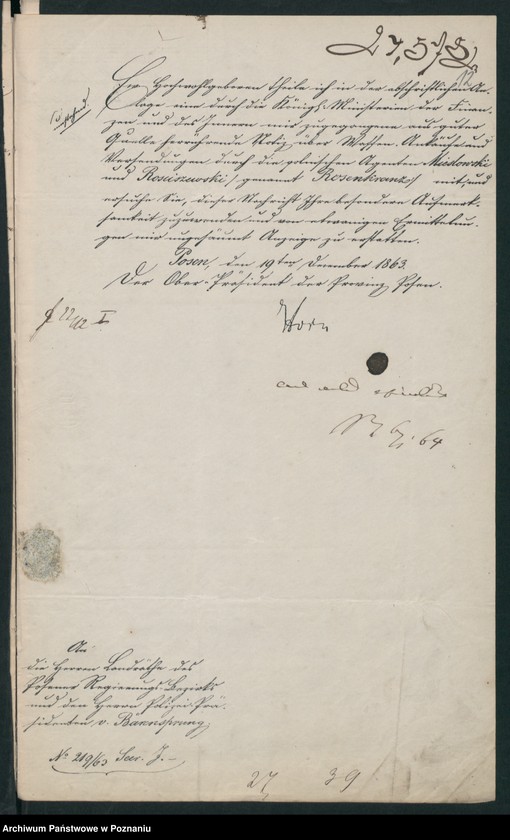 27,575
Ew Hochwohlgeboren theile ich in der abschriftlichen An-
lage eine durch die Königl. Ministerien der Finan-
zen und des Innern mir zugegangene aus guter
Quelle herrührende Notiz über Waffen-Ankäufe und
Versendungen durch die polnischen Agenten Mudowski
und Rosiszewski (genannt Rosenkranz) mit, und
ersuche Sie, dieser Nachricht Ihre besondere Aufmerk-
samkeit zuzuwenden und von etwanigen Ermittelun-
gen mir ungesäumt Anzeige zu erstatten.
Posen, den 19ten December 1863.
Der Ober-Präsident der Provinz Posen.
Horn
64
An
die Herren Landräthe des
Posener Regierungs-Bezirks
und den Herrn Polizei-Prä-
sidenten v. Bärensprung
No 219/63 Secr. J.
27 39
Archiwum Państwowe w Poznaniu